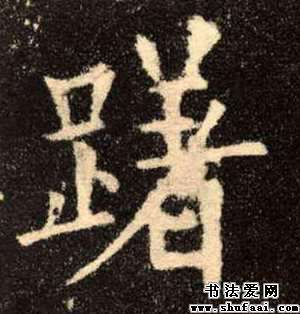 躇
书法爱网
www.shufaai.com